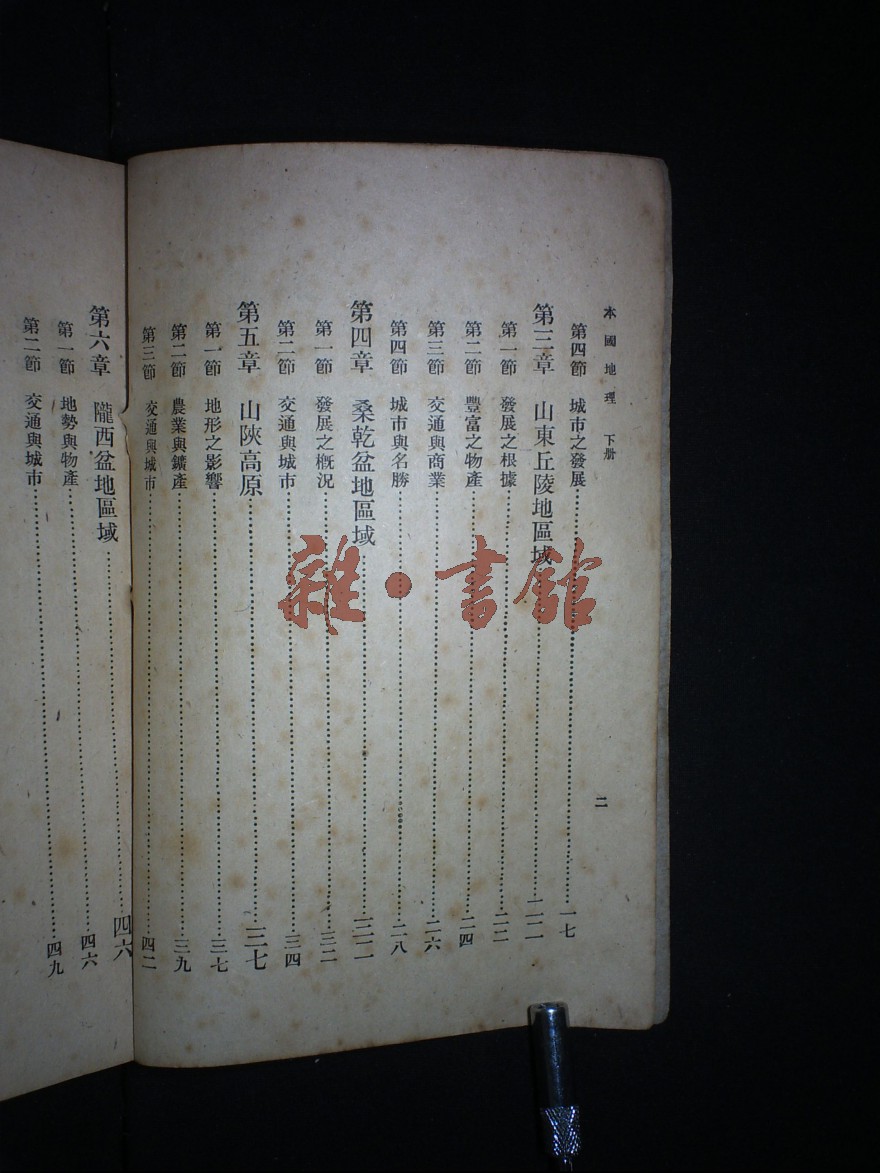 本國地理 下册
二
第四節 城市之發展……一七
第三章 山東丘陵地區域……二二
第一節 發展之根據……二二
第二節 豐富之物產……二四
第三節 交通與商業……二六
第四節 城市與名勝……二八
第四章 桑乾盆地區域……三二
第一節 發展之概況……三二
第二節 交通與城市……三四
第五章 山陝高原……三七
第一節 地形之影響……三七
第二節 農業與鑛產……三九
第三節 交通與城市……四二
第六章 隴西盆地區域……四六
第一節 地勢與物產……四六
第二節 交通與城市……四九
雜·書館